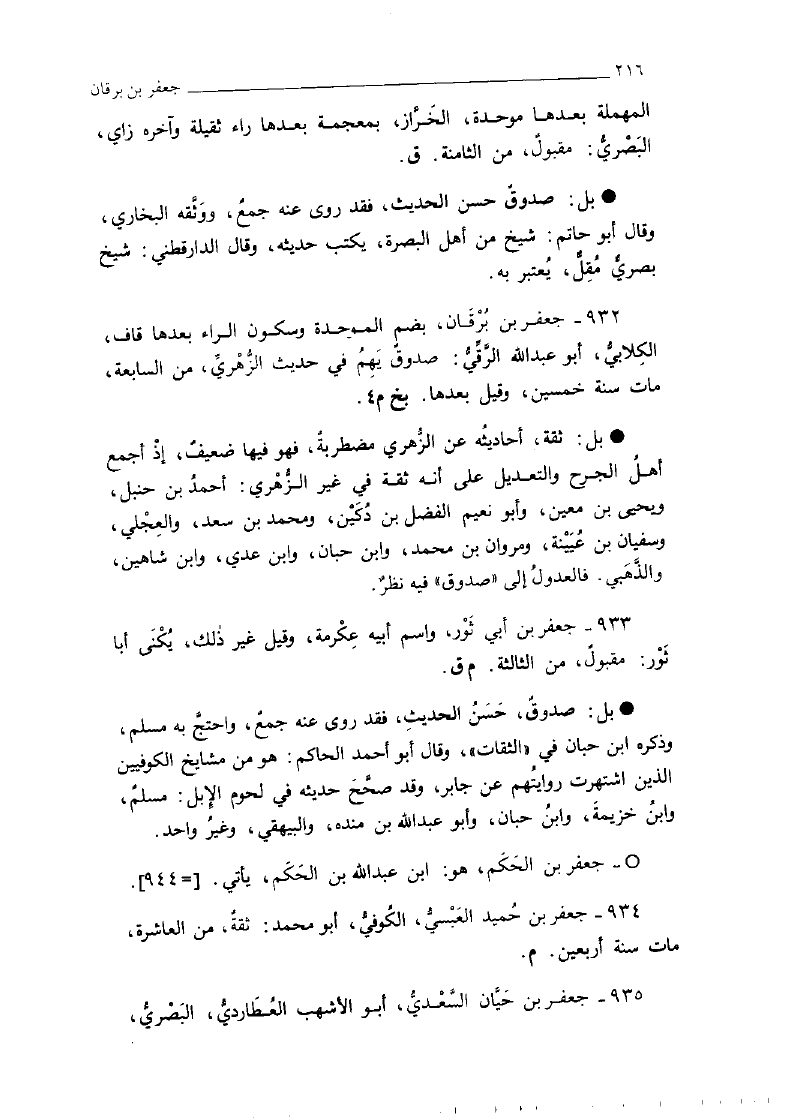 ٢١٦ جعفر بن برقان
المهملة بعدها موحدة، الخَرَّاز، بمعجمة بعدها راء ثقيلة وآخره زاي،
البَصْريُّ: مقبولٌ، من الثامنة. ق.
● بل: صدوقٌ حسن الحديث، فقد روى عنه جمعٌ، ووَثَّقه البخاري،
وقال أبو حاتم: شيخ من أهل البصرة، يكتب حديثه، وقال الدارقطني: شيخ
بصريٌّ مُقِلٌّ، يُعتبر به.
٩٣٢ـ جعفر بن بُرْقَان، بضم الموحدة وسكون الراء بعدها قاف،
الكِلابيُّ، أبو عبدالله الرَّقِّيُّ: صدوقٌ يَهِمُ في حديث الزُّهْريِّ، من السابعة،
مات سنة خمسين، وقيل بعدها. بخ م٤.
● بل: ثقة، أحاديثُه عن الزُّهري مضطربةٌ، فهو فيها ضعيفٌ، إذْ أجمع
أهلُ الجرح والتعديل على أنه ثقة في غير الزُّهْري: أحمدُ بن حنبل،
ويحيى بن معين، وأبو نعيم الفضل بن دُكَيْن، ومحمد بن سعد، والعِجْلي،
وسفيان بن عُيَيْنة، ومروان بن محمد، وابن حبان، وابن عدي، وابن شاهين،
والذَّهَبي. فالعدولُ إلى «صدوق» فيه نظرٌ.
٩٣٣ـ جعفر بن أبي ثَوْر، واسم أبيه عِكْرمة، وقيل غير ذٰلك، يُكْنَى أبا
ثَوْر: مقبولٌ، من الثالثة. م ق.
● بل: صدوقٌ، حَسَنُ الحديثِ، فقد روى عنه جمعٌ، واحتجَّ به مسلم،
وذكره ابن حبان في «الثقات»، وقال أبو أحمد الحاكم: هو من مشايخ الكوفيين
الذين اشتهرت روايتُهم عن جابر، وقد صحَّحَ حديثه في لحوم الإبل: مسلمٌ،
وابنُ خزيمةَ، وابنُ حبان، وأبو عبدالله بن منده، والبيهقي، وغيرُ واحد.
○ـ جعفر بن الحَكَم، هو: ابن عبدالله بن الحَكَم، يأتي. [=٩٤٤].
٩٣٤ـ جعفر بن حُميد العَبْسيُّ، الكُوفيُّ، أبو محمد: ثقةٌ، من العاشرة،
مات سنة أربعين. م.
٩٣٥ـ جعفر بن حَيَّان السَّعْديُّ، أبو الأشهب العُطَارديُّ، البَصْريُّ،